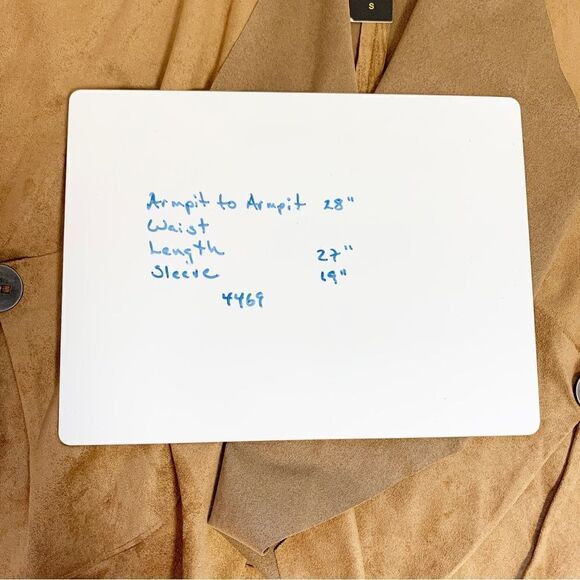 S
Armpit to Armpit 28"
Waist
Length 27"
Sleeve 19"
4469